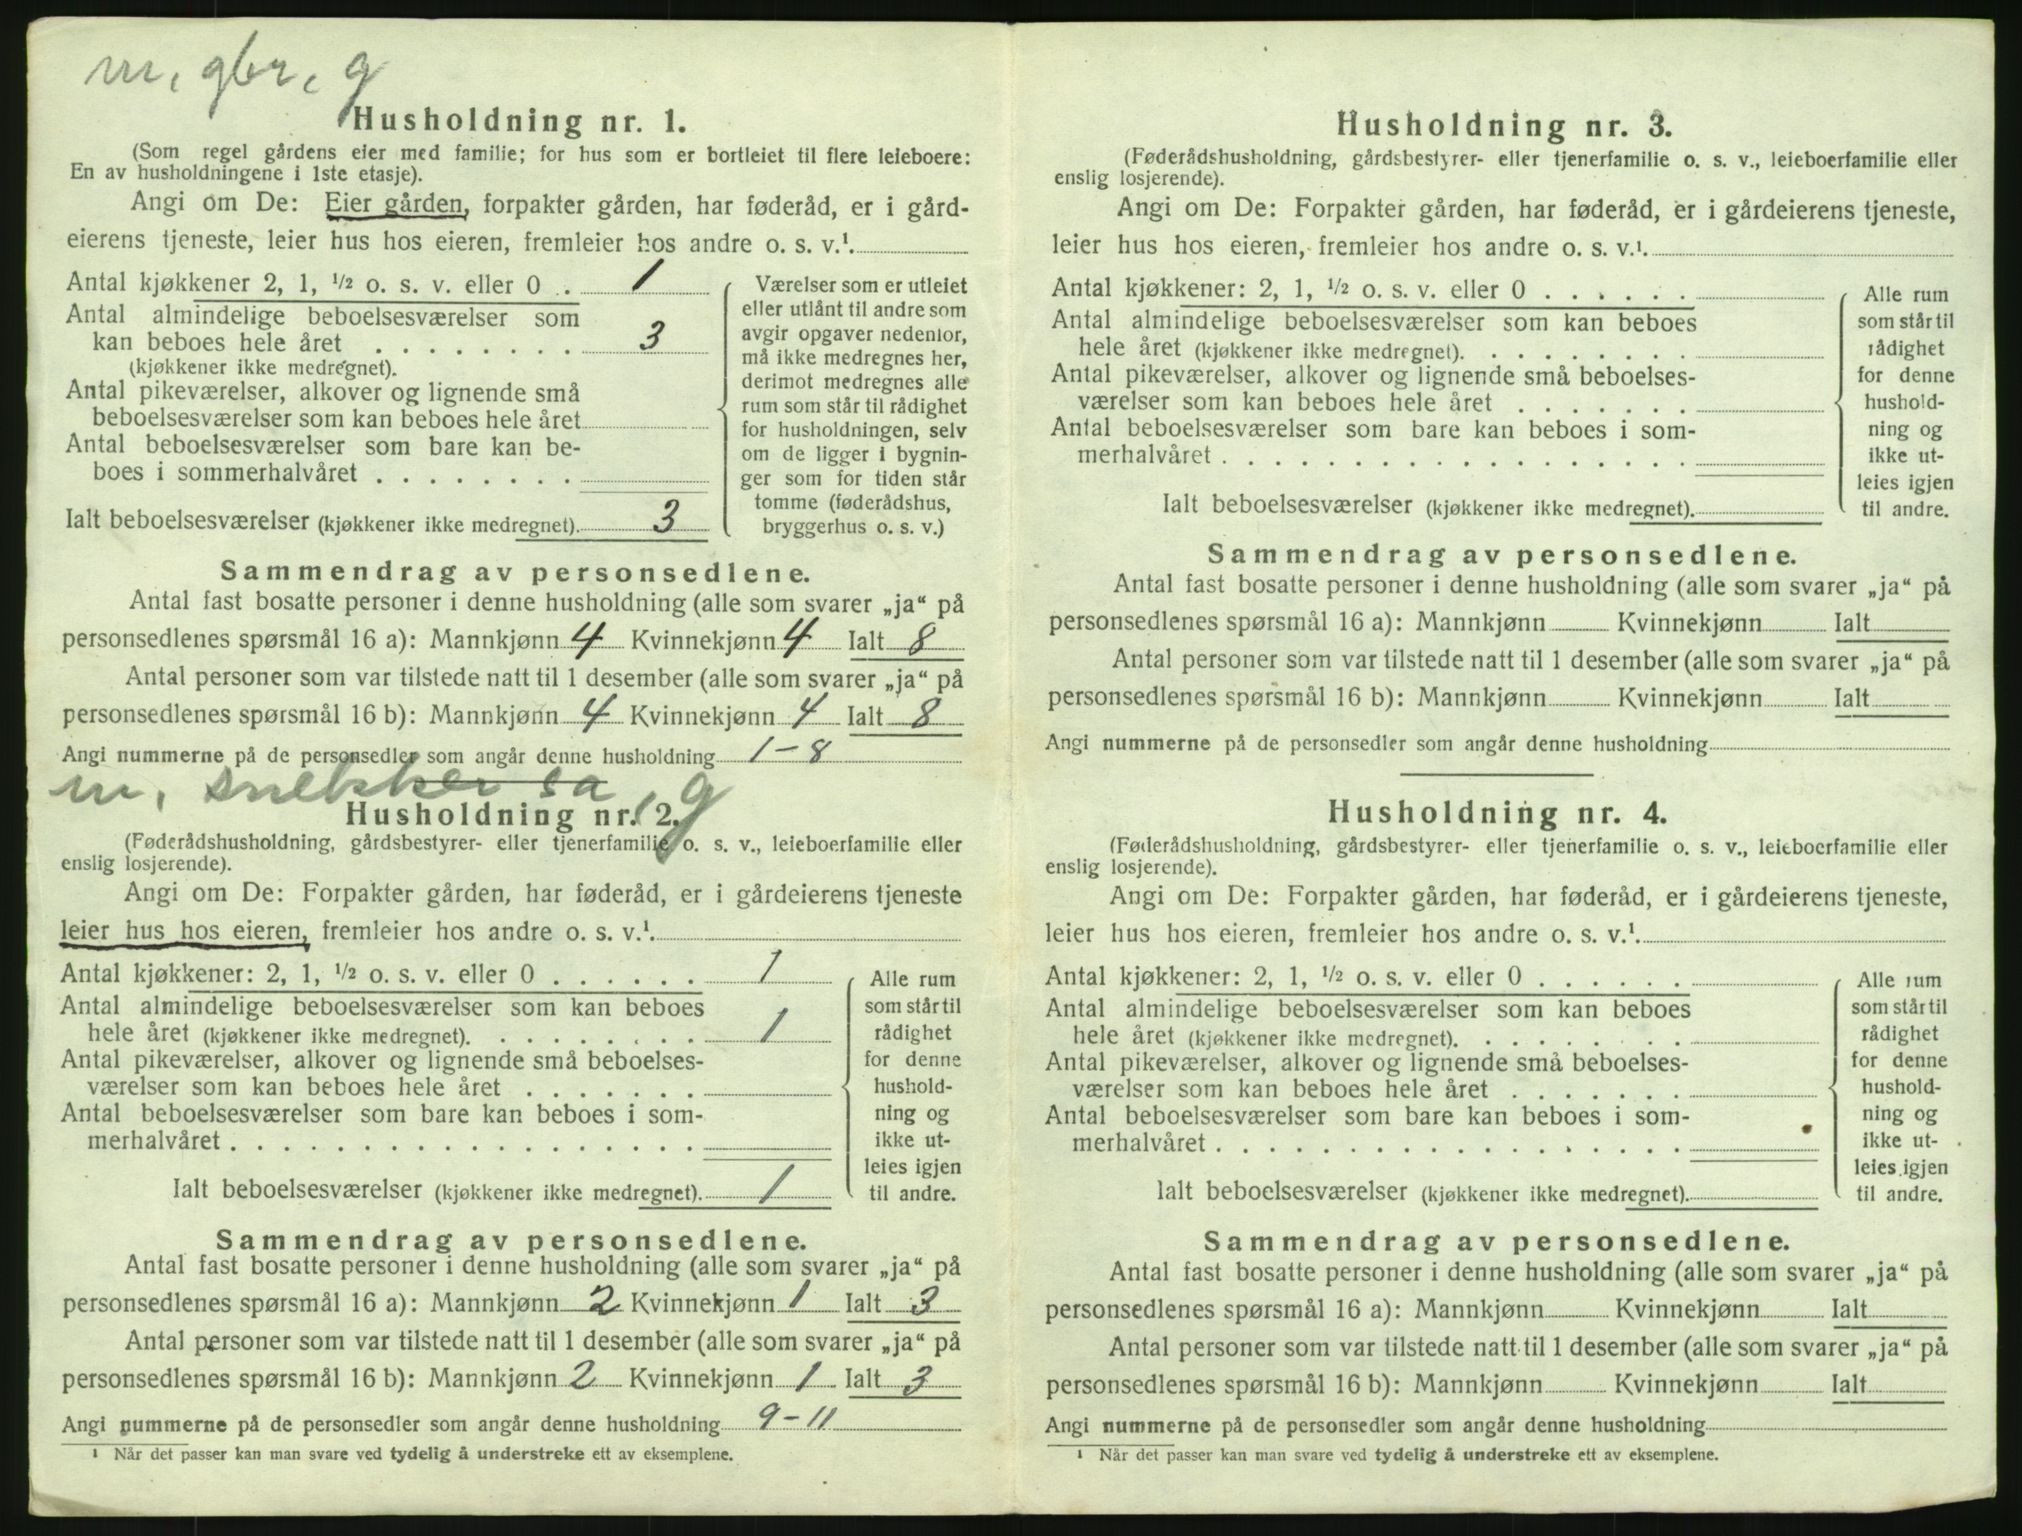 m, gbr, g
Husholdning nr. 1.
(Som regel gårdens eier med familie; for hus som er bortleiet til flere leieboere:
En av husholdningene i 1ste etasje).
Angi om De: Eier gården, forpakter gården, har føderåd, er i gård-
eierens tjeneste, leier hus hos eieren, fremleier hos andre o. s. v.¹.
Antal kjøkkener 2, 1, ½ o. s. v. eller 0 . . 1
Antal almindelige beboelsesværelser som
kan beboes hele året . . . . . . . . 3
(kjøkkener ikke medregnet).
Antal pikeværelser, alkover og lignende små
beboelsesværelser som kan beboes hele året
Antal beboelsesværelser som bare kan be-
boes i sommerhalvåret . . . . . . . .
Ialt beboelsesværelser (kjøkkener ikke medregnet). 3
Værelser som er utleiet
eller utlånt til andre som
avgir opgaver nedenfor,
må ikke medregnes her,
derimot medregnes alle
rum som står til rådighet
for husholdningen, selv
om de ligger i bygnin-
ger som for tiden står
tomme (føderådshus,
bryggerhus o. s. v.)
Sammendrag av personsedlene.
Antal fast bosatte personer i denne husholdning (alle som svarer „ja“ på
personsedlenes spørsmål 16 a): Mannkjønn 4 Kvinnekjønn 4 Ialt 8
Antal personer som var tilstede natt til 1 desember (alle som svarer „ja“ på
personsedlenes spørsmål 16 b): Mannkjønn 4 Kvinnekjønn 4 Ialt 8
Angi nummerne på de personsedler som angår denne husholdning 1-8
m, snekker sa, g
Husholdning nr. 2.
(Føderådshusholdning, gårdsbestyrer- eller tjenerfamilie o. s. v., leieboerfamilie eller
enslig losjerende).
Angi om De: Forpakter gården, har føderåd, er i gårdeierens tjeneste
leier hus hos eieren, fremleier hos andre o. s. v.¹.
Antal kjøkkener: 2, 1, ½ o. s. v. eller 0 . . . . . . 1
Antal almindelige beboelsesværelser som kan beboes
hele året (kjøkkener ikke medregnet). . . . . . . . . 1
Antal pikeværelser, alkover og lignende små beboelses-
værelser som kan beboes hele året . . . . . . .
Antal beboelsesværelser som bare kan beboes i som-
merhalvåret . . . . . . . . . . . . . . . . . .
Ialt beboelsesværelser (kjøkkener ikke medregnet). 1
Alle rum
som står til
rådighet
for denne
hushold-
ning og
ikke ut-
leies igjen
til andre.
Sammendrag av personsedlene.
Antal fast bosatte personer i denne husholdning (alle som svarer „ja“ på
personsedlenes spørsmål 16 a): Mannkjønn 2 Kvinnekjønn 1 Ialt 3
Antal personer som var tilstede natt til 1 desember (alle som svarer „ja“ på
personsedlenes spørsmål 16 b): Mannkjønn 2 Kvinnekjønn 1 Ialt 3
Angi nummerne på de personsedler som angår denne husholdning 9-11
¹ Når det passer kan man svare ved tydelig å understreke ett av eksemplene.
Husholdning nr. 3.
(Føderådshusholdning, gårdsbestyrer- eller tjenerfamilie o. s. v., leieboerfamilie eller
enslig losjerende).
Angi om De: Forpakter gården, har føderåd, er i gårdeierens tjeneste,
leier hus hos eieren, fremleier hos andre o. s. v.¹.
Antal kjøkkener: 2, 1, ½ o. s. v. eller 0 . . . . . .
Antal almindelige beboelsesværelser som kan beboes
hele året (kjøkkener ikke medregnet). . . . . . . . .
Antal pikeværelser, alkover og lignende små beboelses-
værelser som kan beboes hele året . . . . . . .
Antal beboelsesværelser som bare kan beboes i som-
merhalvåret . . . . . . . . . . . . . . . . . .
Ialt beboelsesværelser (kjøkkener ikke medregnet).
Alle rum
som står til
rådighet
for denne
hushold-
ning og
ikke ut-
leies igjen
til andre.
Sammendrag av personsedlene.
Antal fast bosatte personer i denne husholdning (alle som svarer „ja“ på
personsedlenes spørsmål 16 a): Mannkjønn Kvinnekjønn Ialt
Antal personer som var tilstede natt til 1 desember (alle som svarer „ja“ på
personsedlenes spørsmål 16 b): Mannkjønn Kvinnekjønn Ialt
Angi nummerne på de personsedler som angår denne husholdning
Husholdning nr. 4.
(Føderådshusholdning, gårdsbestyrer- eller tjenerfamilie o. s. v., leieboerfamilie eller
enslig losjerende).
Angi om De: Forpakter gården, har føderåd, er i gårdeierens tjeneste,
leier hus hos eieren, fremleier hos andre o. s. v.¹.
Antal kjøkkener: 2, 1, ½ o. s. v. eller 0 . . . . . .
Antal almindelige beboelsesværelser som kan beboes
hele året (kjøkkener ikke medregnet). . . . . . . . .
Antal pikeværelser, alkover og lignende små beboelses-
værelser som kan beboes hele året . . . . . . .
Antal beboelsesværelser som bare kan beboes i som-
merhalvåret . . . . . . . . . . . . . . . . . .
Ialt beboelsesværelser (kjøkkener ikke medregnet).
Alle rum
som står til
rådighet
for denne
hushold-
ning og
ikke ut-
leies igjen
til andre.
Sammendrag av personsedlene.
Antal fast bosatte personer i denne husholdning (alle som svarer „ja“ på
personsedlenes spørsmål 16 a): Mannkjønn Kvinnekjønn Ialt
Antal personer som var tilstede natt til 1 desember (alle som svarer „ja“ på
personsedlenes spørsmål 16 b): Mannkjønn Kvinnekjønn Ialt
Angi nummerne på de personsedler som angår denne husholdning
¹ Når det passer kan man svare ved tydelig å understreke ett av eksemplene.